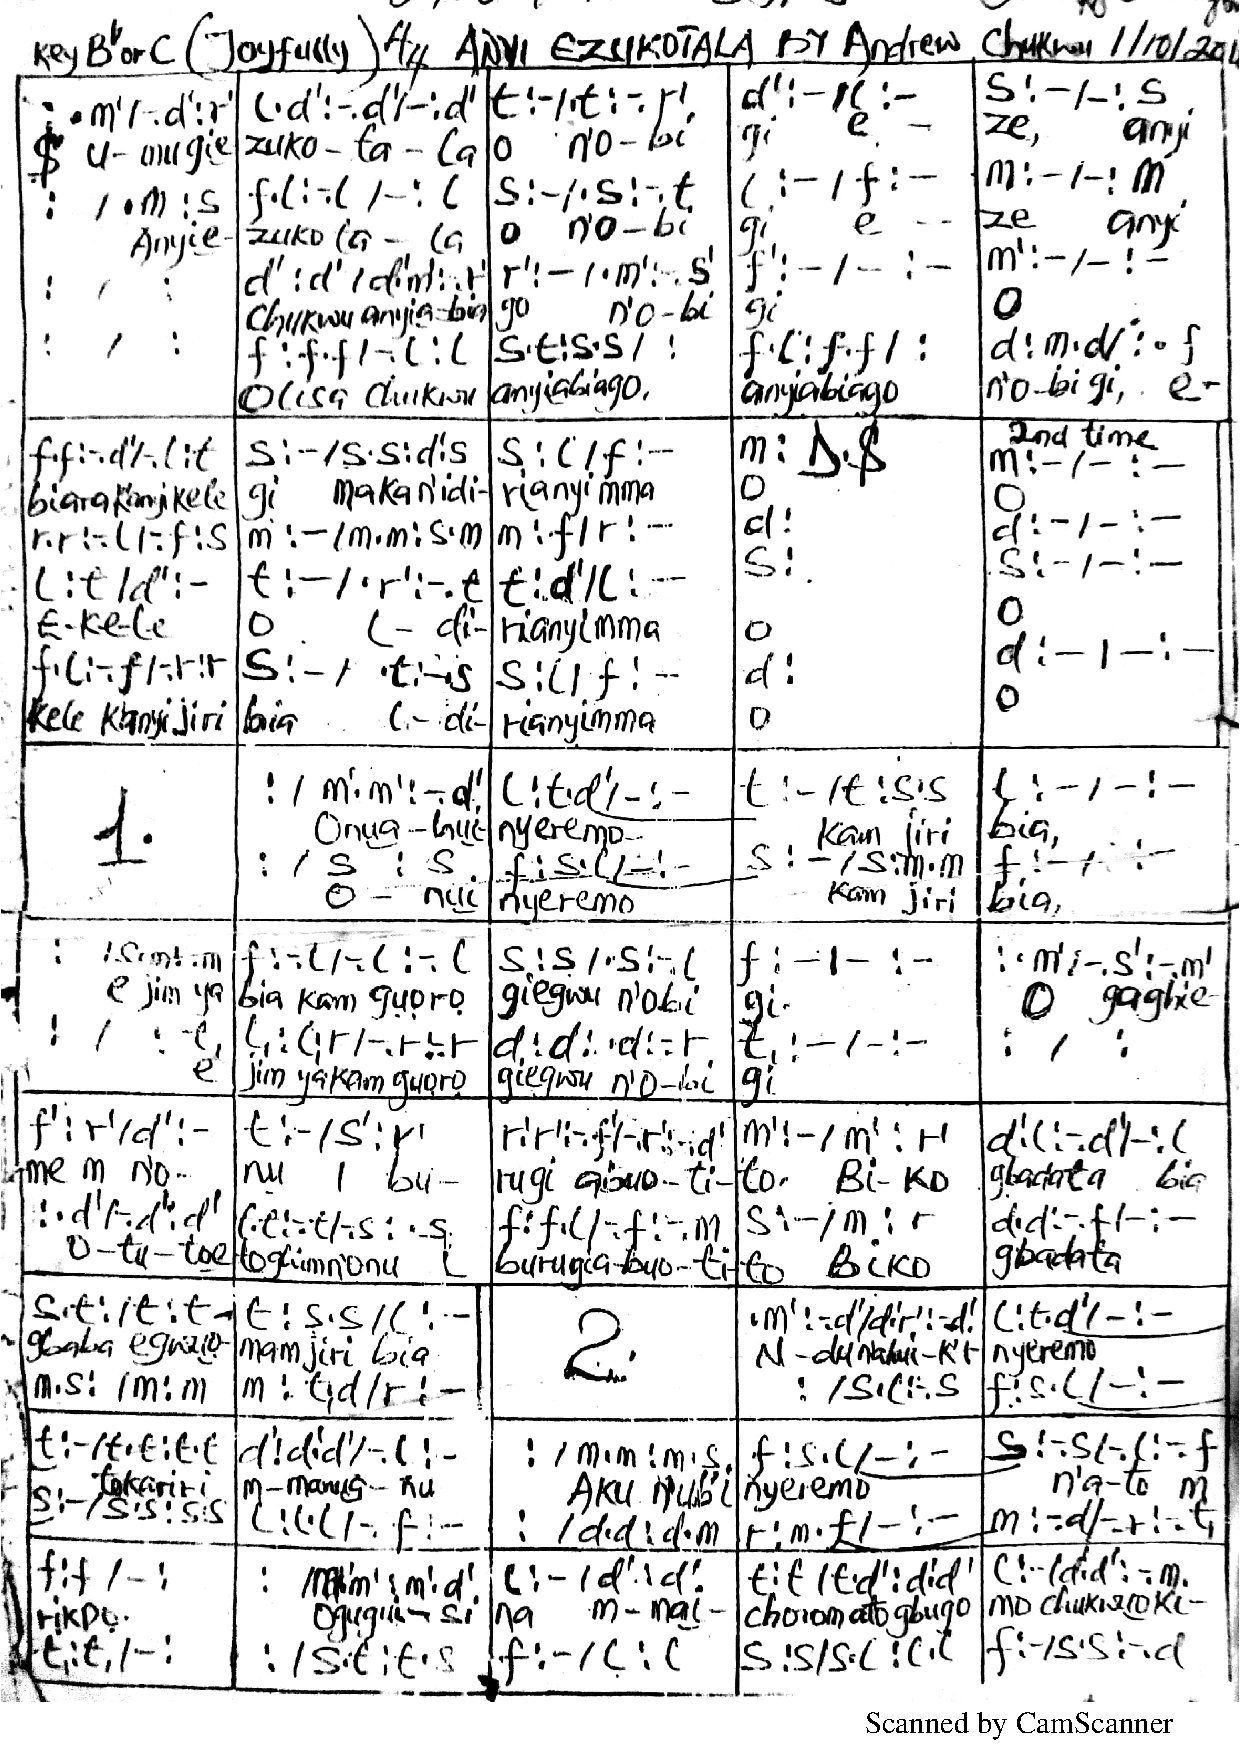 Key Bb or C (Joyfully) 4/4 ANYI EZUKOTALA BY Andrew Chukwu 1/10/201
: .m'/-.d':r' l.d':-.d'/-.:d' t:-/.t:-.r' d':-/l:- s:-/-:s
$ U-mugie zuko-ta-la O n'O-bi gi e - ze, anyi
: / .m:s f.l:-.l/-:l s:-/.s:-.t l:-/f:- m:-/-:m
Anyie- zuko la- la O n'O-bi gi e -- ze anyi
: / : d':d'/d'.m':-.r' r':-/.m':-.s' f':-/-:- m':-/-:-
Chukwu anyia-bia go n'O-bi gi O
: / : f:f.f/-.l:l s.t:s.s/ : f.l:f.f/ : d:m.d/:.f
Olisa Chukwu anyiabiago, anyiabiago n'O-bi gi, e-
2nd time
f.f:-.d'/-.l:t s:-/s.s:d'.s s:l/f:- m: D.$ m:-/-:-
biara kanyi kele gi makan'idi- rianyimma O O
r.r:-.l/-.f:s m:-/m.m:s.m m:f/r:- d: d:-/-:-
l:t/d':- t:-/.r':-.t t:d'/l:- s: s:-/-:-
E-ke-le O I- di- rianyimma O O
f.l:-.f/-.r:r s:-/ .t:-.s s:l/f:- d: d:-/-:-
Kele Kanyi jiri bia I- di- rianyimma O O
1. : / m'.m':-.d' l:t.d'/-:- t:-/t:s.s l:-/-:-
Onua-hui nyeremo- kam jiri bia,
: / s : s f:s.l/-:- s:-/s:m.m f:-/-:-
O - nui nyeremo kam jiri bia,
: /s:m:.m f:-.l/-.l:-.l s:s/.s:-.l f:-/-:- :.m'/-.s':-.m'
e jim ya bia kam guoro giegwu n'obi gi. O gaghie-
: / :-t, l,:l,.r/-.r:-.r d:d:.d:-.r t,:-/-:- : / :
e jim ya kam guoro giegwu n'O-bi gi
f':r'/d':- t:-/s':r' r'.r':-.f'/-.r':-.d' m':-/m':r' d'.l:-.d'/-:l
me m n'o- nu I bu- rugi aibuo-ti- to- Bi-ko gbadata bia
:.d'/-.d':d' l.t:-.t/-.s:.s f:f.l/-.f:-.m s:-/m:r d.d:-.f/-:-
O-tu-toe toghimn'onu I burugia-buo-ti-to Biko gbadata
s.t:/t:t t:s.s/l:- 2. .m':-.d'/d'.r':-.d' l:t.d'/-:-
gbaba egwuo- mam jiri bia N-dunahui-k'i nyeremo
m.s: /m:m m:t,.d/r:- : /s.l:l.s f:s.l/-:-
t:-/t.t:t.t d':d'.d'/-.l:- : /m.m:m.s f:s.l/-:- s:-.s/-.l:-.f
tokariri m-manug-nu Aku n'ubi nyeremo n'a-to m
s:-/s.s:s.s l:l.l/-.f:- : /d.d:d.m r:m.f/-:- m:-.d/-.r:-.t,
f:f/-: : /m'.m':m'.d' l:-/d':d' t:t/t.d':d'.d' l:-/d'.d':-.m
rikpo. Ogugui-si na m-mai- choromatogbugo mo chukwuoki-
t,:t,/-: : /s.t:t.s f:-/l:l s:s/s.l:l.l f:-/s.s:-.d
Scanned by CamScanner